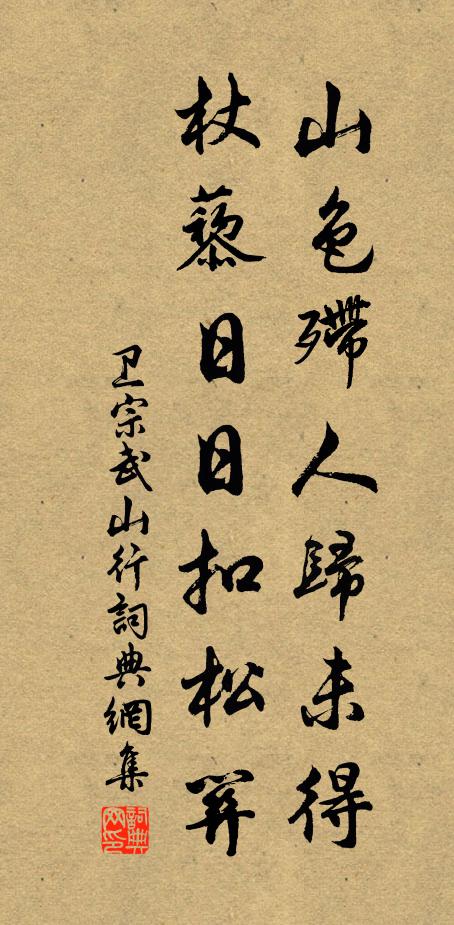 山色殢人歸未得
杖藜日日扣松關
卫宗武山行詞典網集
詞典网印